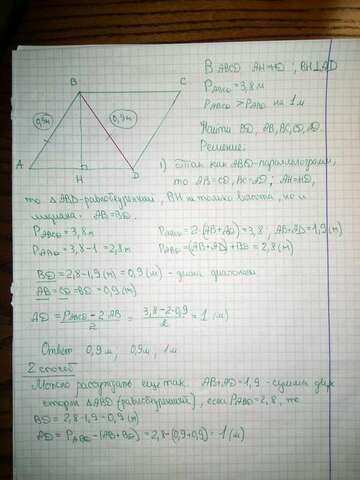 B C
0,9м 0,9м
A H D
В ABCD AH=HD ; BH⊥AD
P ABCD = 3,8 м
P ABCD > P ABD на 1 м
Найти BD, AB, BC, CD, AD.
Решение:
1) Так как ABCD-параллелограмм,
то AB=CD, BC=AD; AH=HD,
то △ABD-равнобедренный, BH не только высота, но и
медиана. AB=BD.
P ABCD = 3,8 м P ABCD = 2·(AB+AD) = 3,8; AB+AD=1,9(м)
P ABD = 3,8-1 = 2,8м P ABD = (AB+AD)+BD = 2,8(м)
BD = 2,8-1,9(м) = 0,9(м) - длина диагонали
AB = CD = BD = 0,9(м)
AD = P ABCD - 2·AB / 2 = 3,8-2·0,9 / 2 = 1(м)
Ответ 0,9м, 0,9м, 1м
2 способ
Можно рассуждать еще так. AB+AD=1,9 - сумма двух
сторон △ABD (равнобедренный), если P ABD = 2,8, то
BD = 2,8-1,9 = 0,9(м)
AD = P ABD - (AB+BD) = 2,8-(0,9+0,9) = 1(м)